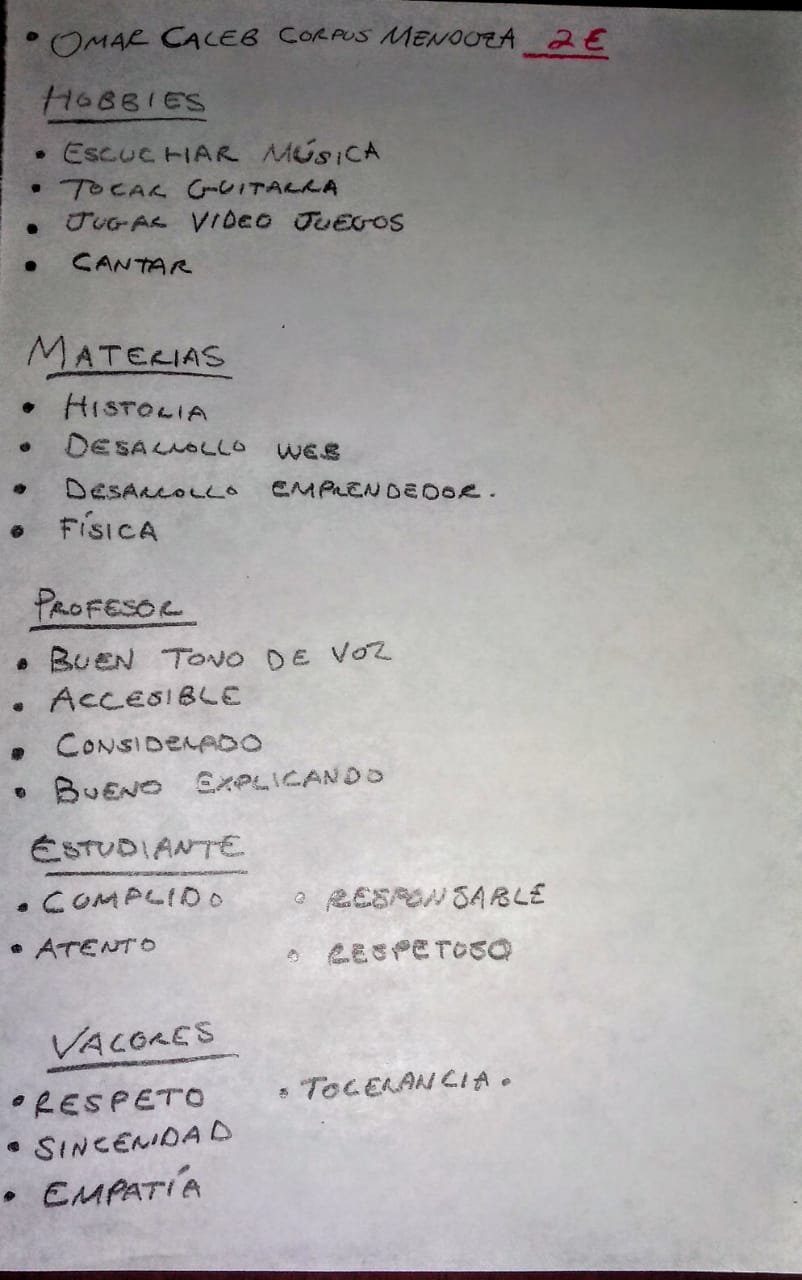 • OMAR CALEB CORPUS MENDOZA 2E
HOBBIES
• ESCUCHAR MÚSICA
• TOCAR GUITARRA
• JUGAR VIDEO JUEGOS
• CANTAR
MATERIAS
• HISTORIA
• DESARROLLO WEB
• DESARROLLO EMPRENDEDOR.
• FÍSICA
PROFESOR
• BUEN TONO DE VOZ
• ACCESIBLE
• CONSIDERADO
• BUENO EXPLICANDO
ESTUDIANTE
• COMPLIDO ◦ RESPONSABLE
• ATENTO ◦ RESPETOSO
VALORES
• RESPETO • TOLERANCIA.
• SINCERIDAD
• EMPATÍA